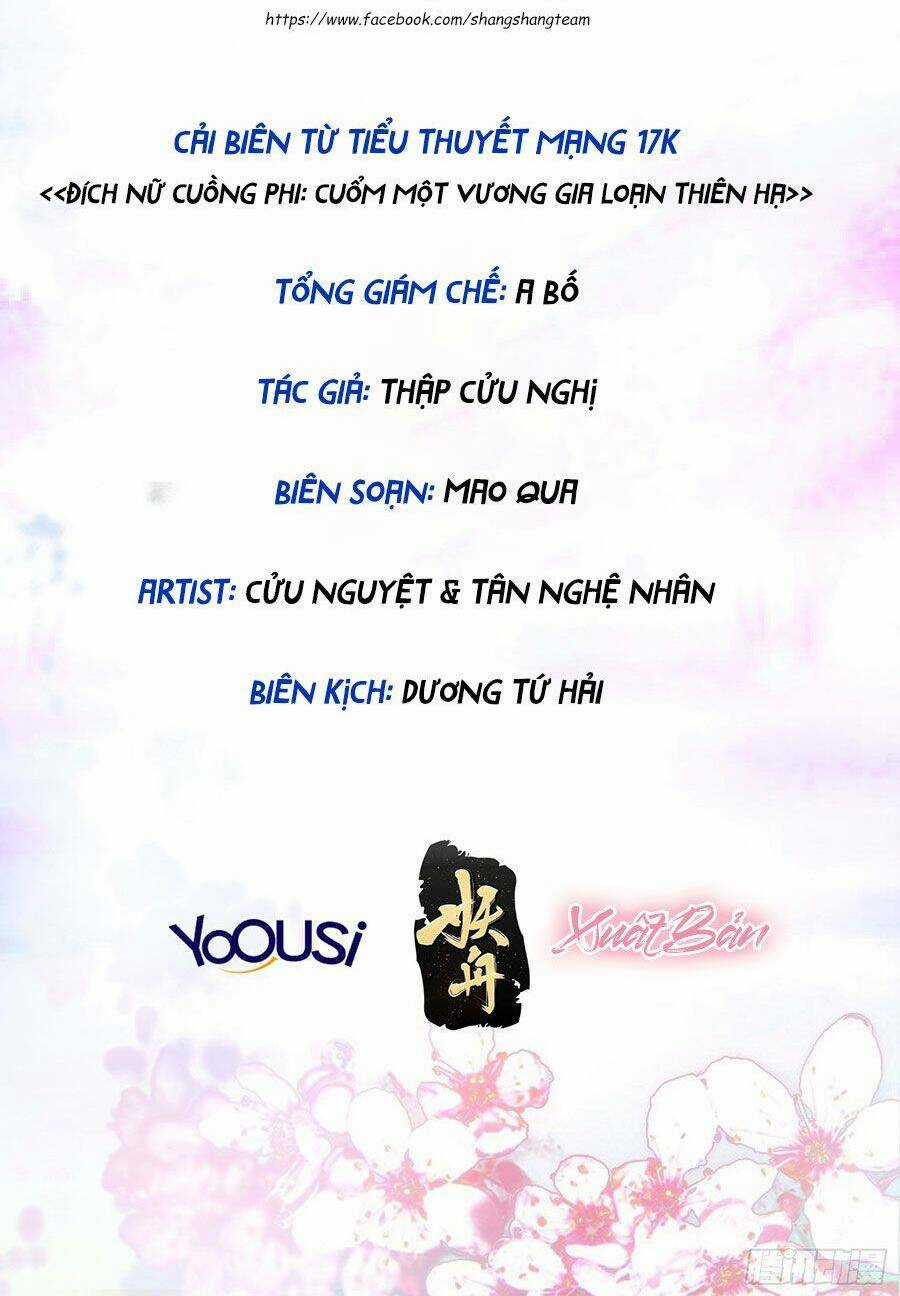 https://www.facebook.com/shangshangteam
CẢI BIÊN TỪ TIỂU THUYẾT MẠNG 17K
<<ĐÍCH NỮ CUỒNG PHI: CUỖM MỘT VƯƠNG GIA LOẠN THIÊN HẠ>>
TỔNG GIÁM CHẾ: A BỐ
TÁC GIẢ: THẬP CỬU NGHỊ
BIÊN SOẠN: MAO QUA
ARTIST: CỬU NGUYỆT & TÂN NGHỆ NHÂN
BIÊN KỊCH: DƯƠNG TỨ HẢI
YOOUSi
妖舟
Xuất Bản
腾讯动漫